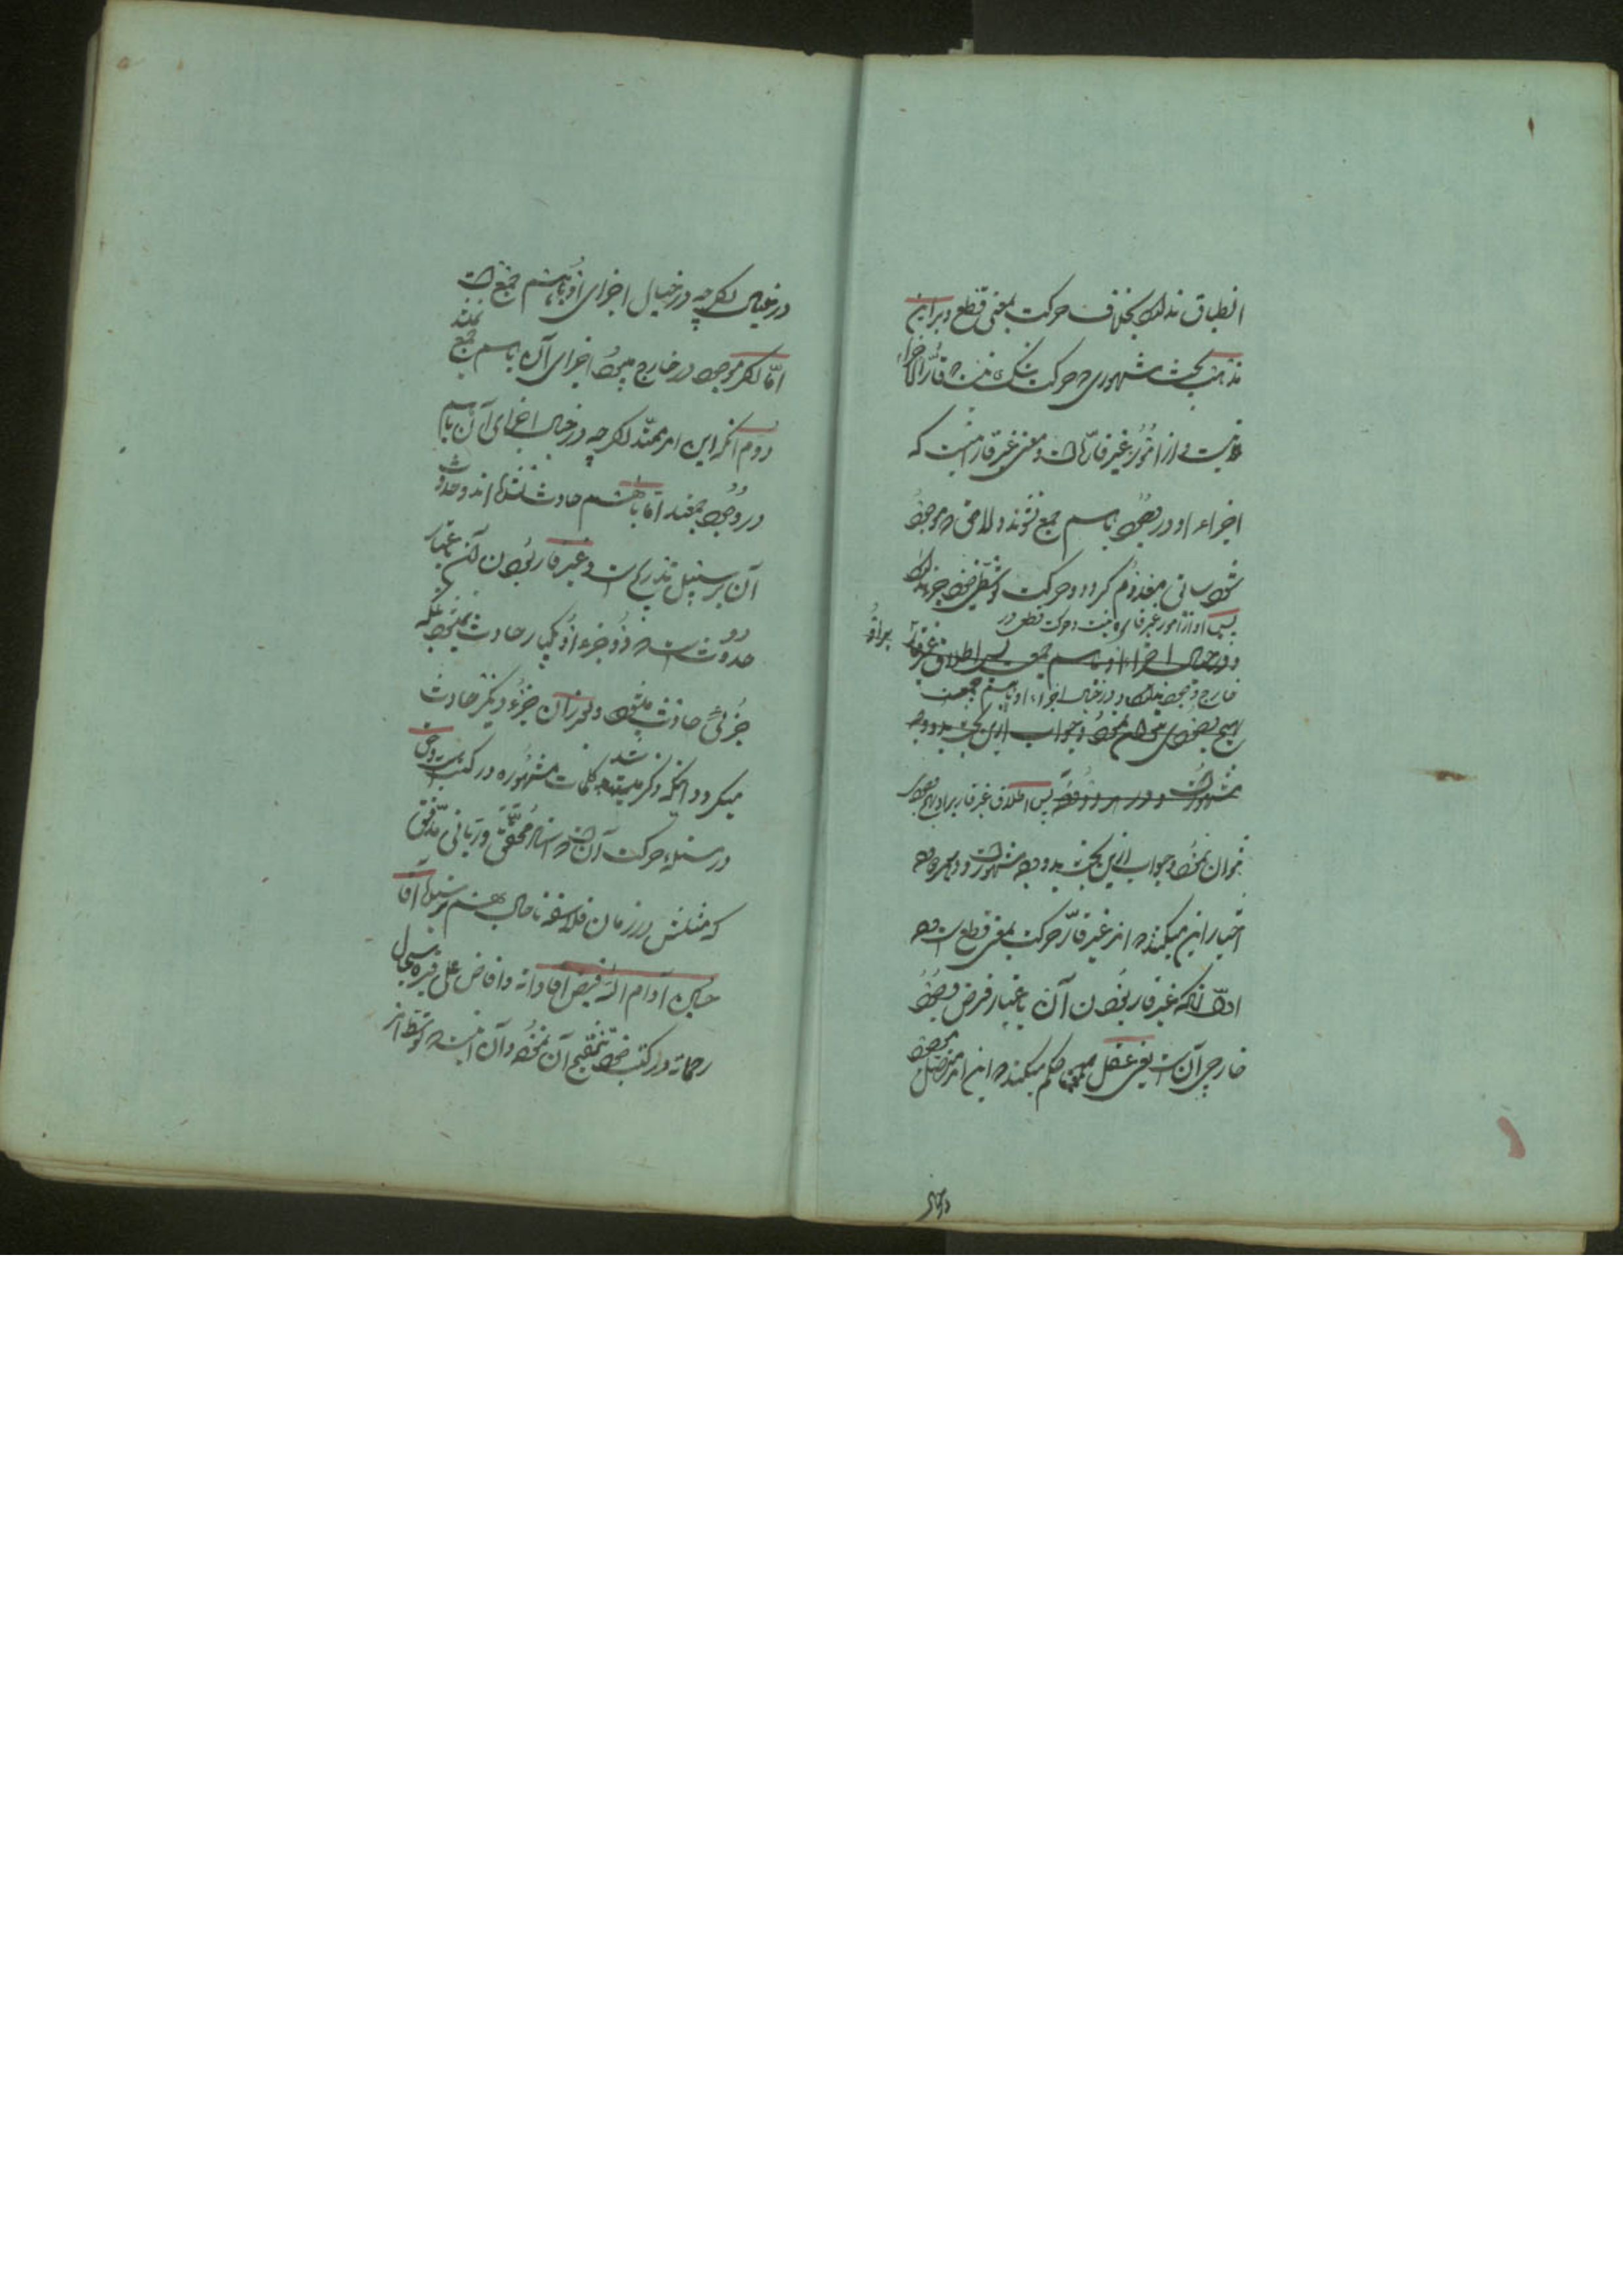 انطباق ندارد بخلاف حرکت بمعنی قطع و برابن
مذهب بحث مشهوری که حرکت شکی نیست که قارّ الاجزاء
نیست و از امور غیر قارّه است و معنی غیر قار اینست که
اجزاء او در وجود باهم جمع نشوند و لاحق که موجود
شود سابق معدوم گردد و حرکت توسطی خود جزء ندارد
پس او از امور غیر قاره نیست و حرکت قطعی در
و در خیال اجزاء او باهم جمع پس اطلاق غیر قار بر او
خارج وجود ندارد و در خیال اجزاء او باهم جمعند
بهیچ وجودی نتوان نمود و جواب ازین بحث بدو وجه
مشهور است و در هر دو وجه پس اطلاق غیر قار بر او بهیچ وجود
نتوان نمود و جواب ازین بحث بدو وجه مشهور است و در هر دو وجه
اختیار این میکنند که امر غیر قارّ حرکت بمعنی قطع است
اوّل آنکه غیر قار بودن آن باعتبار فرض وجود
خارجی آن است یعنی عقل حکم میکند که این امر متصل موجود
در خیال
در خیال اگر چه در خیال اجزای او باهم جمع است
امّا اگر موجود در خارج میبود اجزای آن باهم جمع نمیشد
دوم آنکه این امر ممتد اگر چه در خیال اجزای آن باهم
در وجود جمعند امّا باهم حادث نشده اند و حدوث
آن بر سبیل تدریج است و غیر قار بودن آن باعتبار
حدوث است که دو جزء او یکبار حادث نمیشود بلکه
جزئی حادث میشود و بعد از آن جزء دیگر حادث
میگردد آنچه ذکر شد کلمات مشهوره در کتب است و حق
در مسئله حرکت آن است که استاد محقق و ربانی مدقق
که مثلش در زمان فلاسفه تا حال بهم نرسیده آقا
حسین ادام الله فیض افاداته و افاض علی قبره سجال
رحماته در کتب خود تنقیح آن نموده و آن اینست که توسط امر